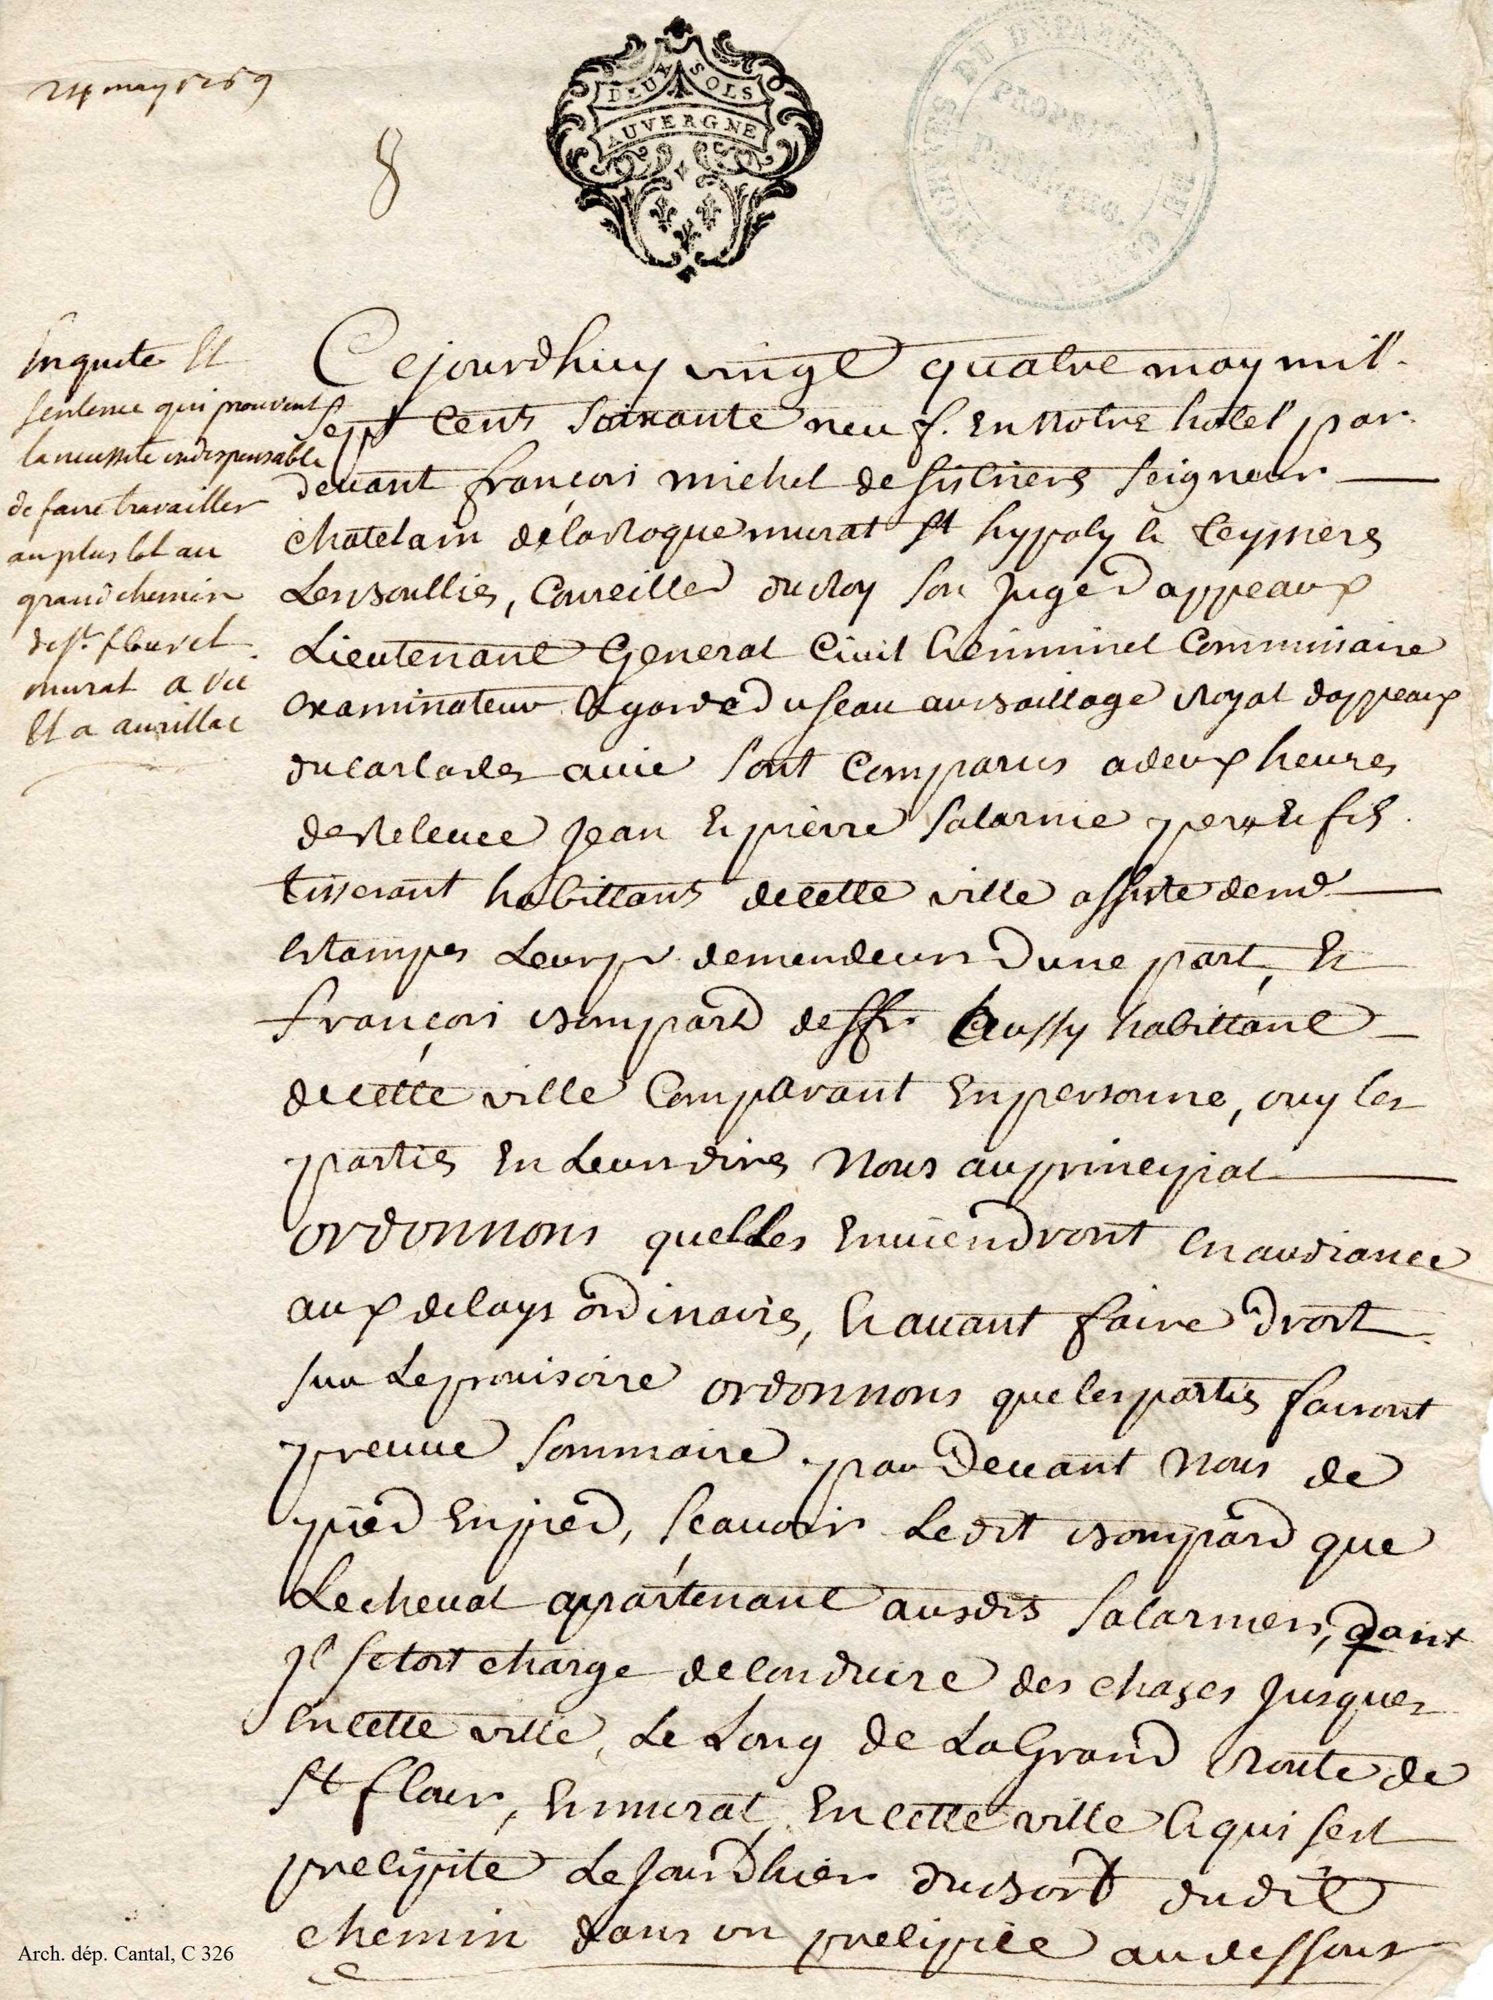 24 may 1769
8
DEUX SOLS
AUVERGNE
ARCHIVES DU DEPARTEMENT DU C
PROPRIETE
PUBLIQUE
Enquete Et
sentence qui prouvent
la necessite indispensable
de faire travailler
au plus tot au
grand chemin
de st. flour et
murat a vic
Et a aurillac
Cejourdhuy vingt quatre may mil
sept cens soixante neuf. En notre hotel par
devant françois michel de sistriers seigneur
chatelain de la Roque murat st hypoly le teyssiere
Les boullies, Conseiller du Roy son juge d appeaux
Lieutenant General Civil Criminel Commissaire
examinateur & garde du seau au bailliage Royal dappeaux
du carlades a vic sont comparus a deux heures
de Relevée jean Et pierre Salarnie pere Et fils
tisserant habittans de cette ville assiste de me
Estampes Leur pr. demendeurs Dune part, Et
françois bompard deffr. aussy habittant
de cette ville Comparant En personne, ouy les
parties En Leurs dires Nous au principal
ordonnons quelles Enviendront En audiance
aux delays ordinaires, Et avant faire droit
sur Le provisoire ordonnons que les parties fairont
preuve sommaire par Devant Nous de
pied En pied, scavoir Ledit bompard que
Le cheval apartenant ausdits Salarnies, dont
jl setoit charge de conduire des chazes jusques
En cette ville, Le Long de La Grand Route de
st flour, Et murat, En cette ville Et qui sest
precipité Le jourdhier du bord dudit
chemin dans un precipice au dessous
Arch. dép. Cantal, C 326